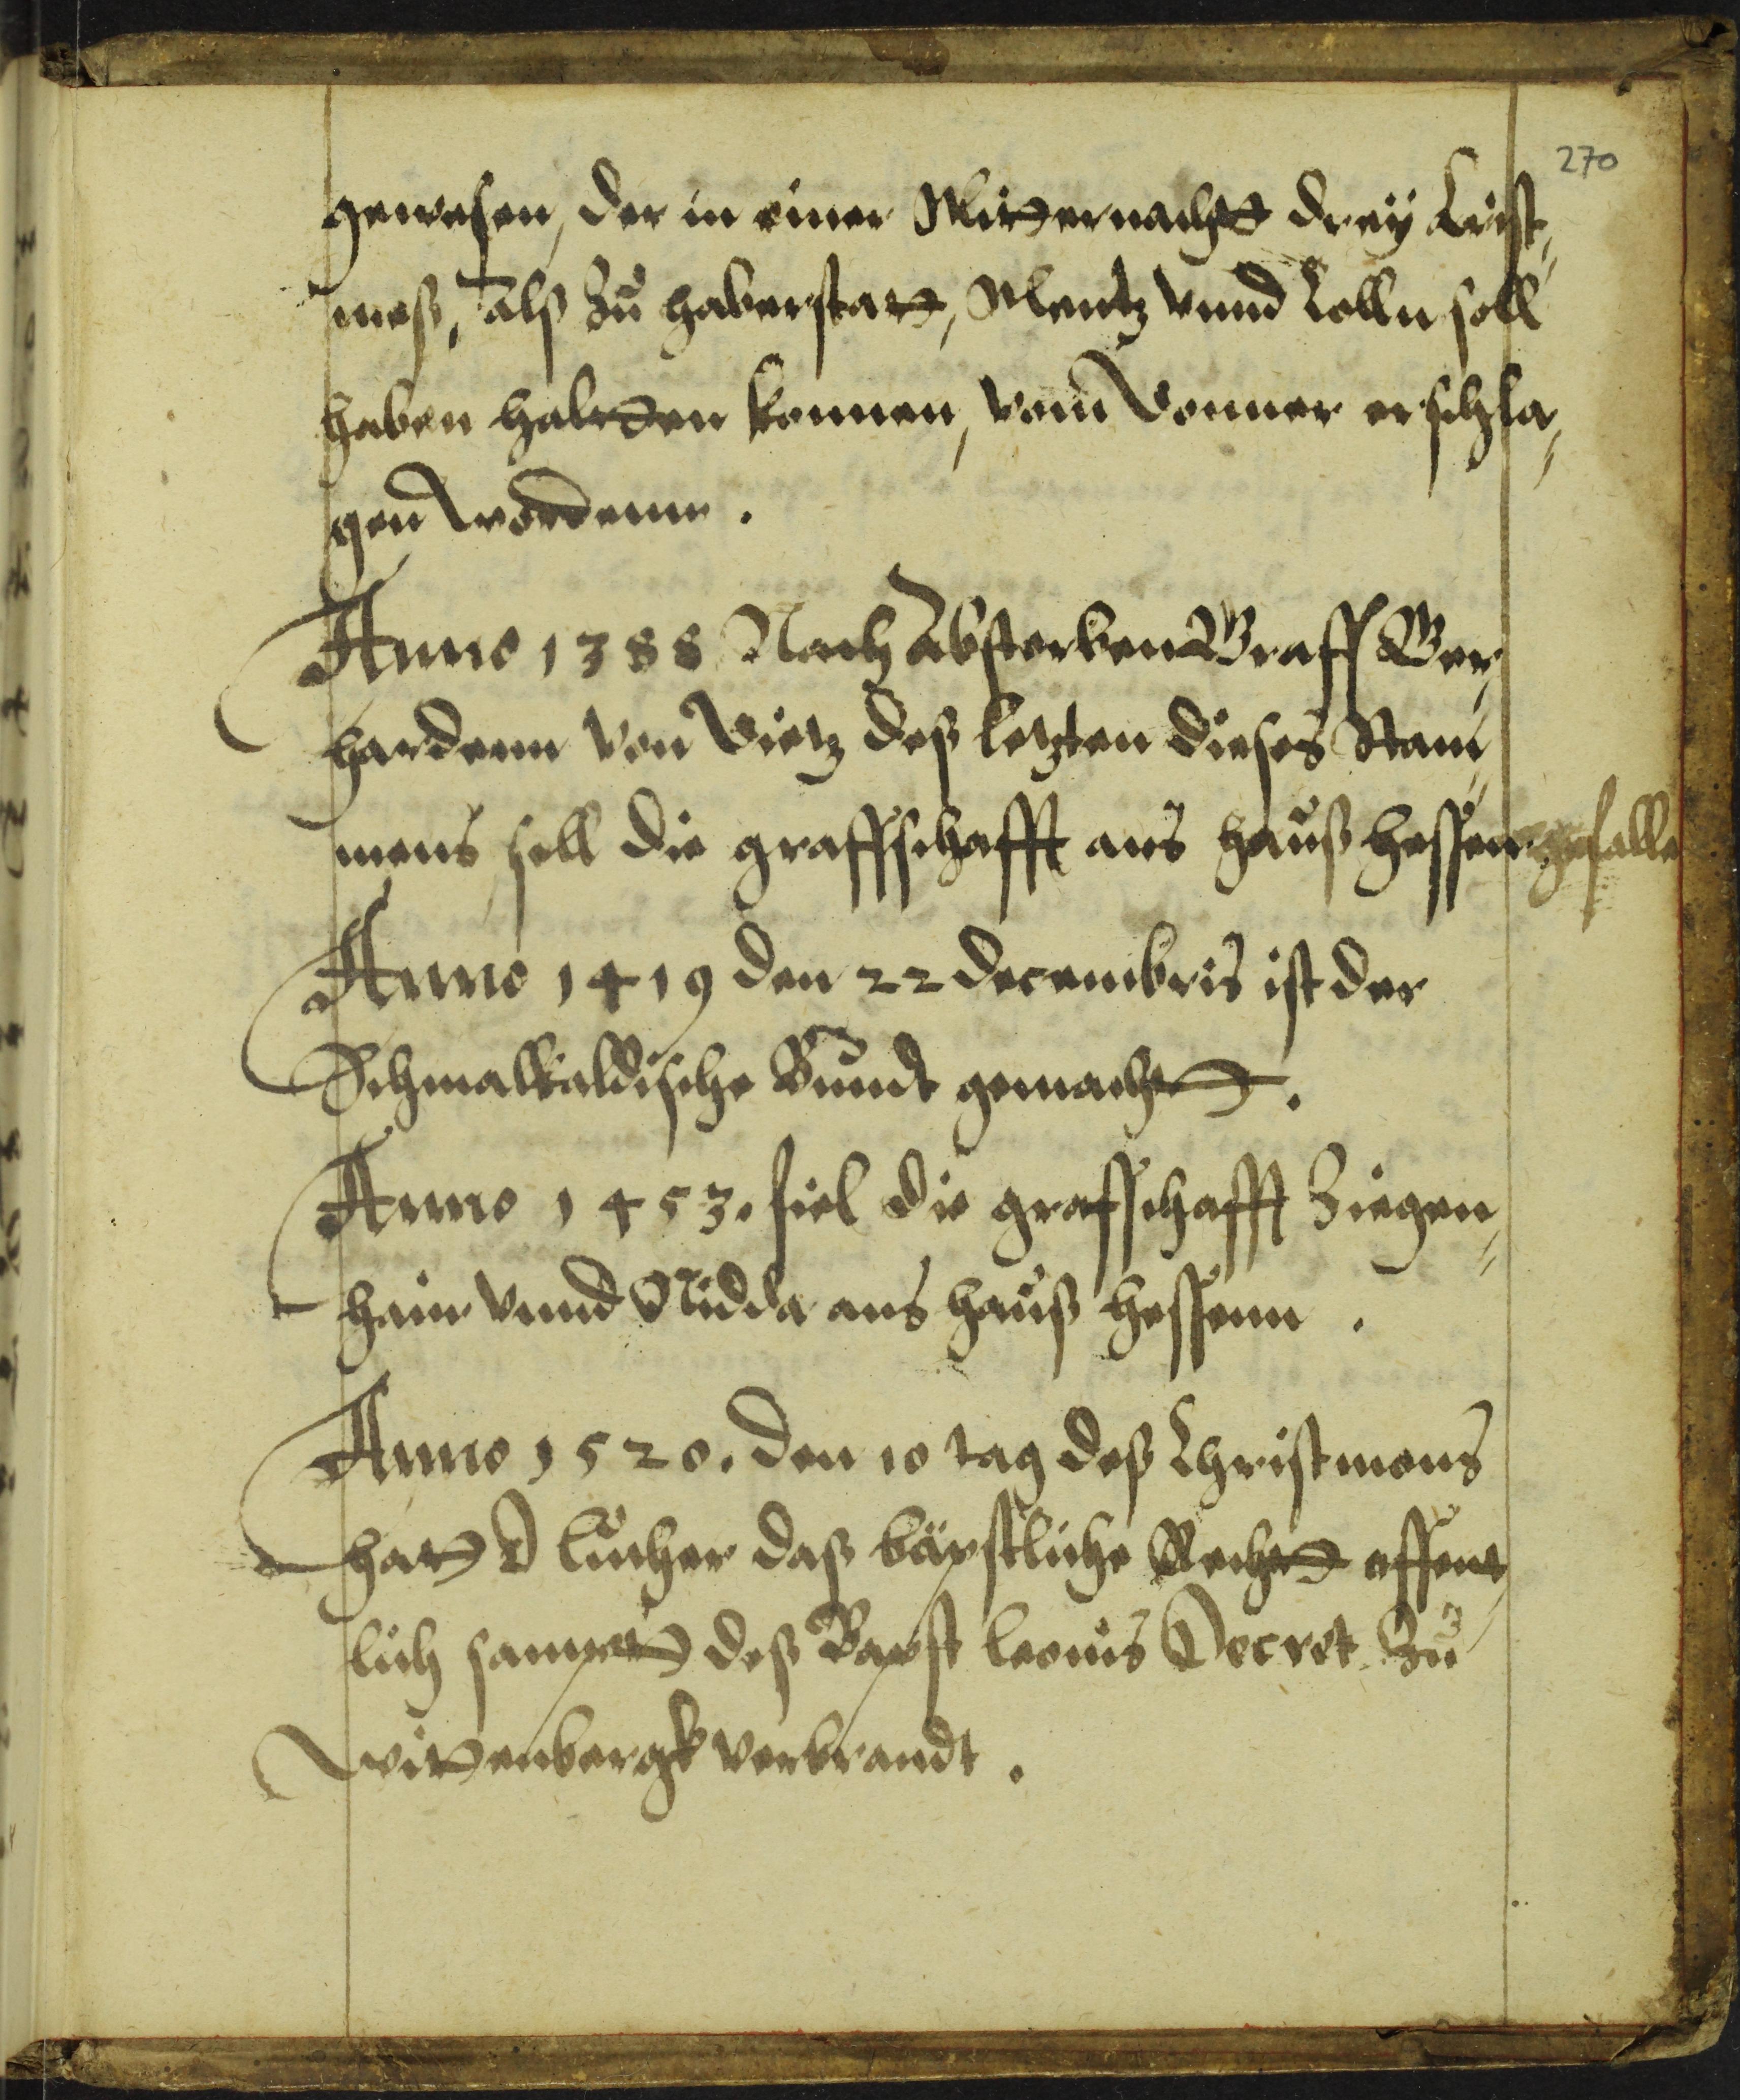 270
gewesen, der in einer Mitternacht dreÿ Crist-
meß, alß zu haberstatt, Mentz vnnd Colln soll
haben haltten konnen, vom Donner erschla-
gen wordenn.
Anno 1388 Nach absterben Graff Ger-
hardenn von Dietz deß letzten dieses Stam-
mens soll die graffschafft ans hauß hessen gefalle
Anno 1419 den 22 decembris ist der
Schmalkaldische Bundt gemacht.
Anno 1453. fiel die grafschafft Ziegen-
hain vnnd Nidda ans hauß hessenn.
Anno 1520. den 10 tag deß Christmons
hatt D luther daß bäpstliche Recht offent-
lich sampt deß Bapst leonis Decret zu
Wittenbergk verbrandt.